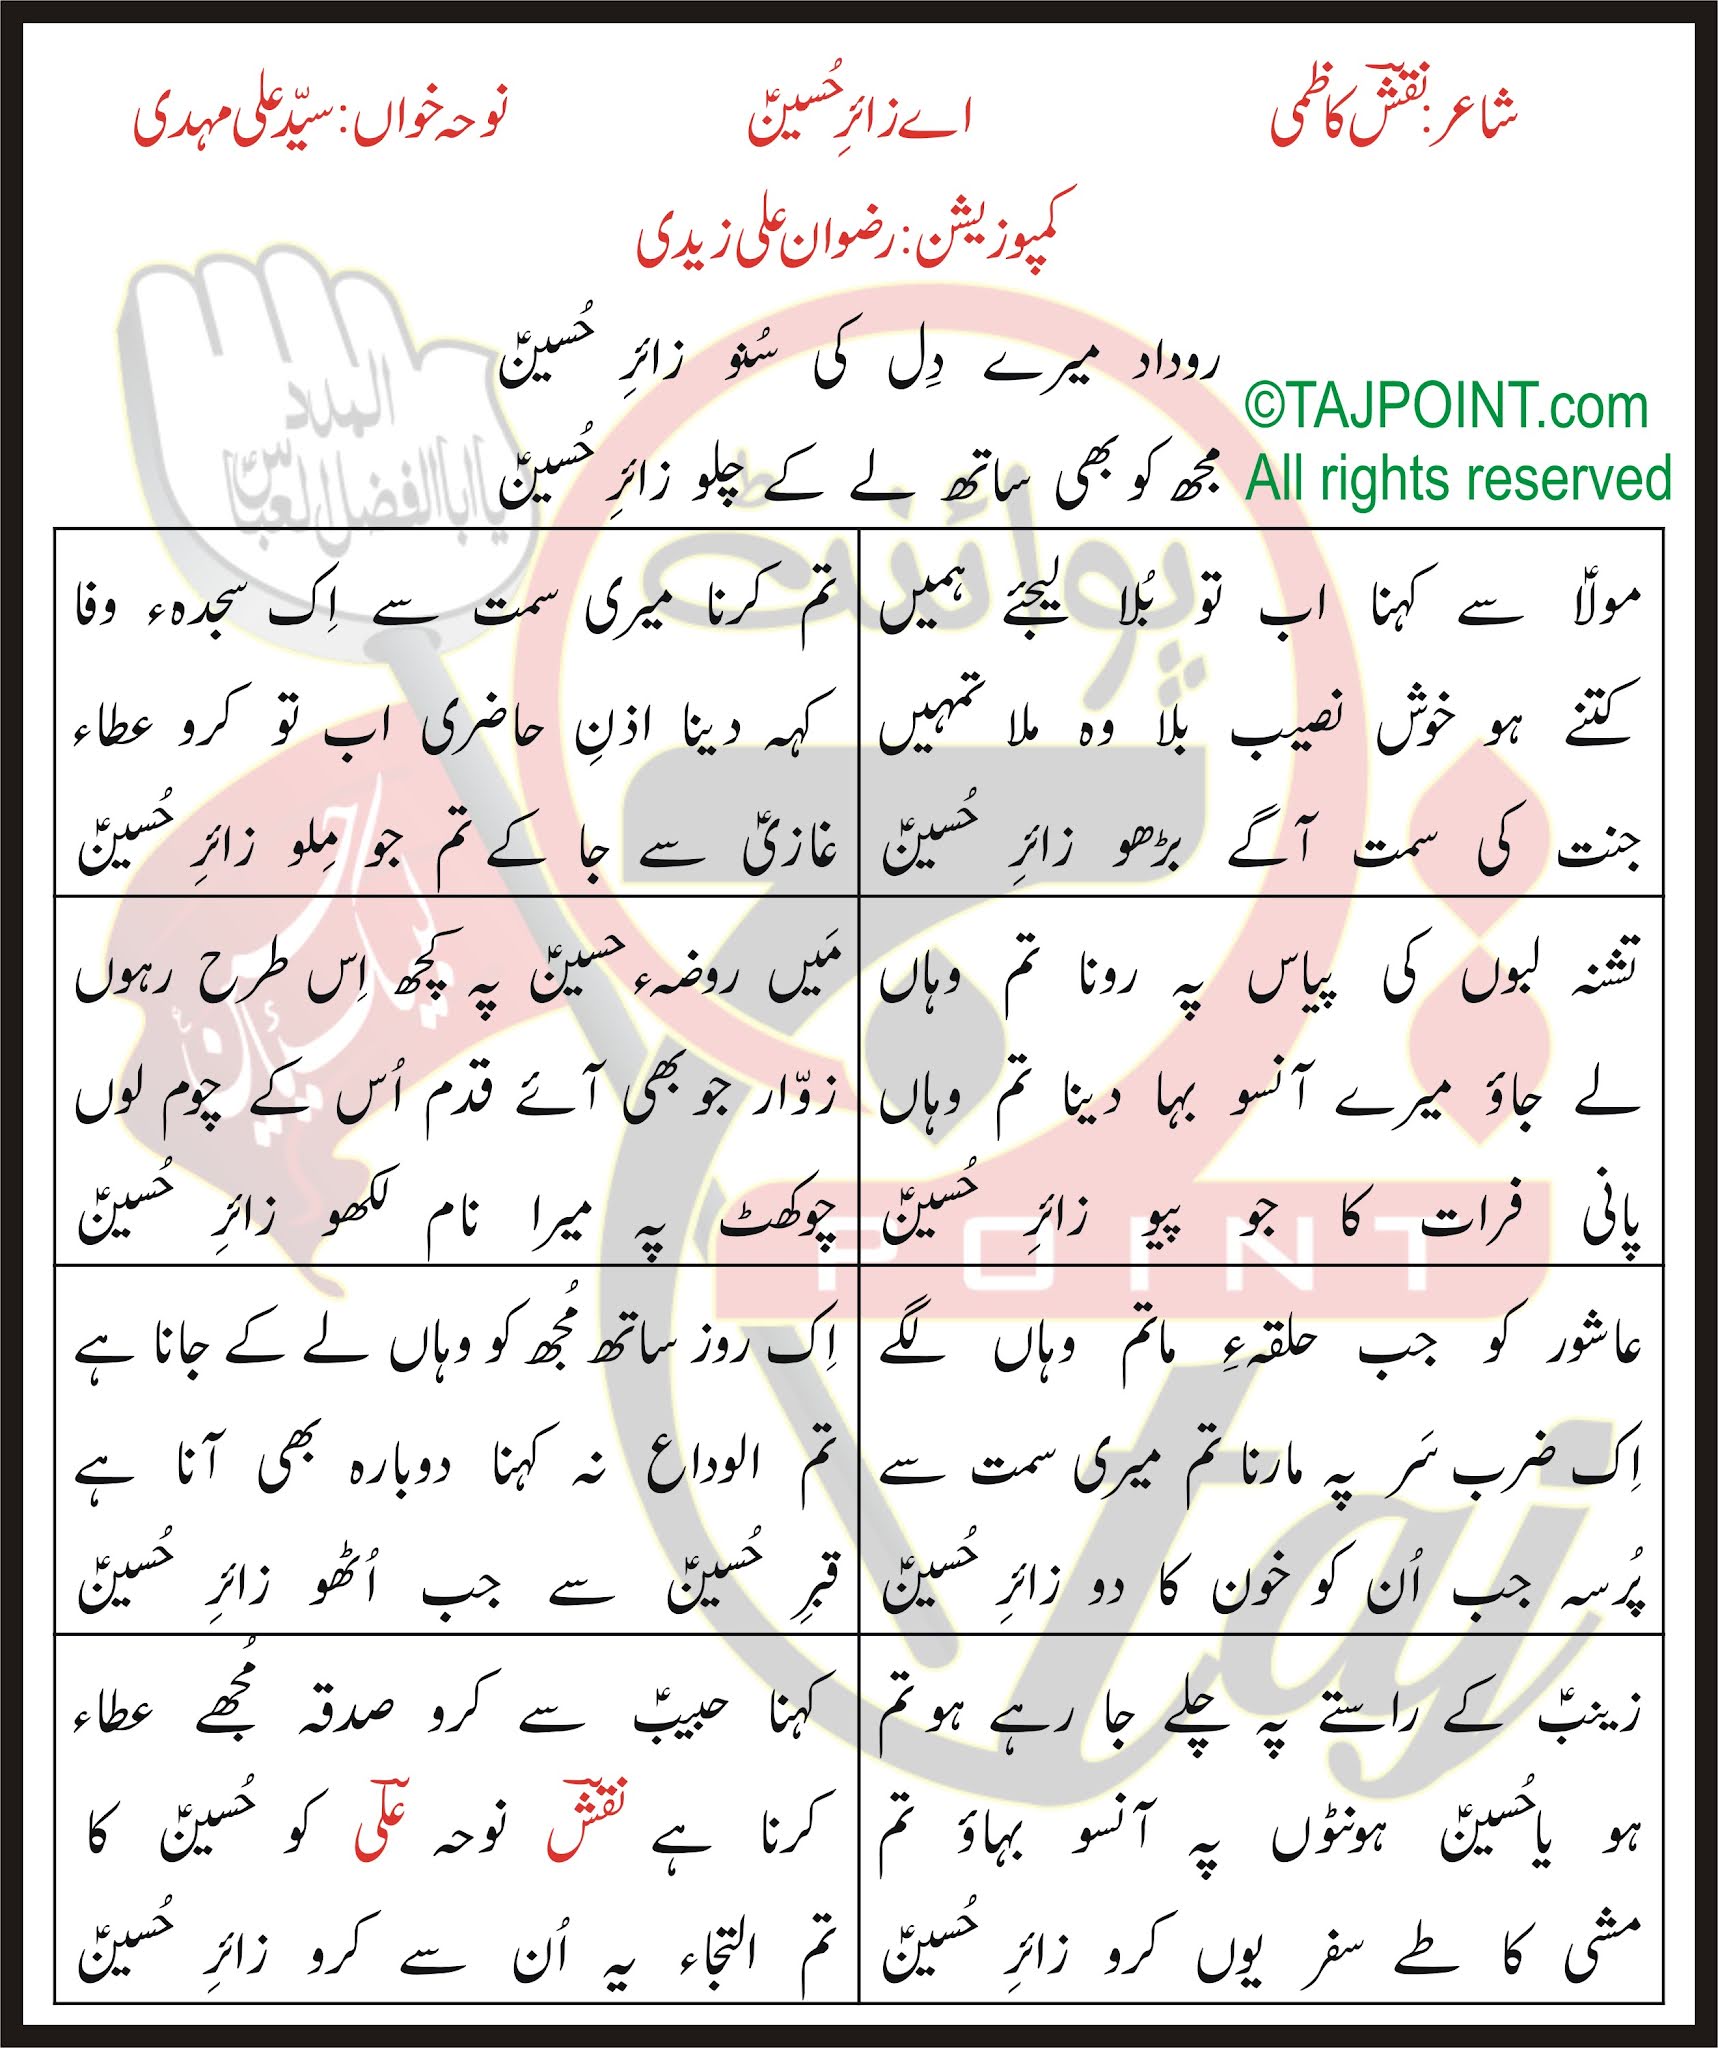 شاعر: نقشؔ کاظمی
اے زائرِ حُسینؑ
نوحہ خواں: سیّد علی مہدی
کمپوزیشن: رضوان علی زیدی
روداد میرے دِل کی سُنو زائرِ حُسینؑ
مجھ کو بھی ساتھ لے کے چلو زائرِ حُسینؑ
©TAJPOINT.com
All rights reserved
مولاؑ سے کہنا اب تو بُلا لیجئے ہمیں
کتنے ہو خوش نصیب بلا وہ ملا تمہیں
جنت کی سمت آگے بڑھو زائرِ حُسینؑ
تم کرنا میری سمت سے اِک سجدہء وفا
کہہ دینا اذنِ حاضری اب تو کرو عطاء
غازیؑ سے جا کے تم جو مِلو زائرِ حُسینؑ
تشنہ لبوں کی پیاس پہ رونا تم وہاں
لے جاؤ میرے آنسو بہا دینا تم وہاں
پانی فرات کا جو پیو زائرِ حُسینؑ
مَیں روضہء حسینؑ پہ کچھ اِس طرح رہوں
زوّار جو بھی آئے قدم اُس کے چوم لوں
چوکھٹ پہ میرا نام لکھو زائرِ حُسینؑ
عاشور کو جب حلقہءِ ماتم وہاں لگے
اِک ضرب سَر پہ مارنا تم میری سمت سے
پُرسہ جب اُن کو خون کا دو زائرِ حُسینؑ
اِک روز ساتھ مُجھ کو وہاں لے کے جانا ہے
تم الوداع نہ کہنا دوبارہ بھی آنا ہے
قبرِ حُسینؑ سے جب اُٹھو زائرِ حُسینؑ
زینبؑ کے راستے پہ چلے جا رہے ہو تم
ہو یاحُسینؑ ہونٹوں پہ آنسو بہاؤ تم
مشی کا طے سفر یوں کرو زائرِ حُسینؑ
کہنا حبیبؑ سے کرو صدقہ مُجھے عطاء
کرنا ہے نقشؔ نوحہ علیؔ کو حُسینؑ کا
تم التجاء یہ اُن سے کرو زائرِ حُسینؑ
پوائنٹ
POINT
Taj
یا ابالفضل العباس
المدد